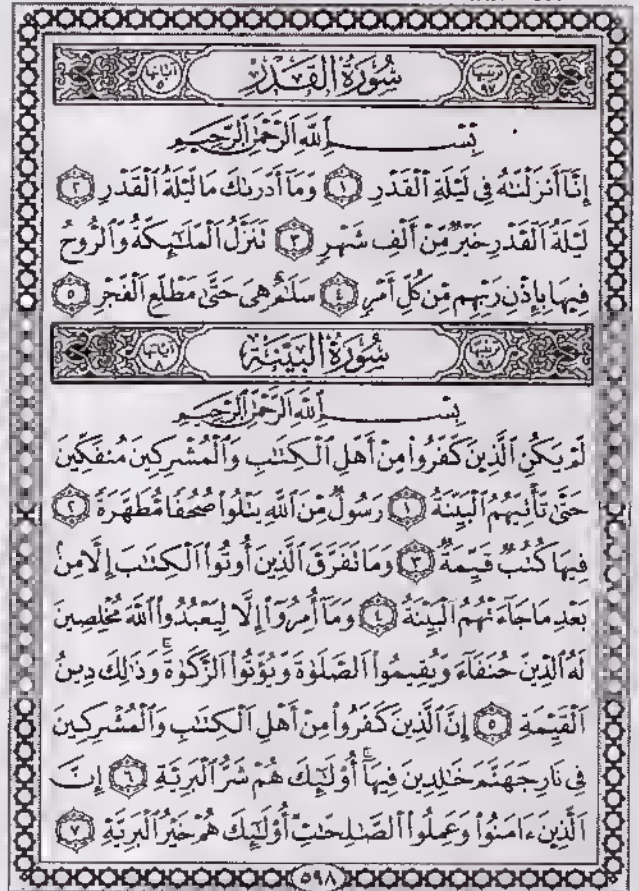 سُورَةُ القَدْرِ
ترتيبها ٩٧
آياتها ٥
بِسْمِ ٱللَّهِ ٱلرَّحْمَٰنِ ٱلرَّحِيمِ
إِنَّآ أَنزَلْنَٰهُ فِى لَيْلَةِ ٱلْقَدْرِ ١ وَمَآ أَدْرَىٰكَ مَا لَيْلَةُ ٱلْقَدْرِ ٢
لَيْلَةُ ٱلْقَدْرِ خَيْرٌ مِّنْ أَلْفِ شَهْرٍ ٣ تَنَزَّلُ ٱلْمَلَٰٓئِكَةُ وَٱلرُّوحُ
فِيهَا بِإِذْنِ رَبِّهِم مِّن كُلِّ أَمْرٍ ٤ سَلَٰمٌ هِىَ حَتَّىٰ مَطْلَعِ ٱلْفَجْرِ ٥
سُورَةُ البَيِّنَةِ
ترتيبها ٩٨
آياتها ٨
بِسْمِ ٱللَّهِ ٱلرَّحْمَٰنِ ٱلرَّحِيمِ
لَمْ يَكُنِ ٱلَّذِينَ كَفَرُوا۟ مِنْ أَهْلِ ٱلْكِتَٰبِ وَٱلْمُشْرِكِينَ مُنفَكِّينَ
حَتَّىٰ تَأْتِيَهُمُ ٱلْبَيِّنَةُ ١ رَسُولٌ مِّنَ ٱللَّهِ يَتْلُوا۟ صُحُفًا مُّطَهَّرَةً ٢
فِيهَا كُتُبٌ قَيِّمَةٌ ٣ وَمَا تَفَرَّقَ ٱلَّذِينَ أُوتُوا۟ ٱلْكِتَٰبَ إِلَّا مِنۢ
بَعْدِ مَا جَآءَتْهُمُ ٱلْبَيِّنَةُ ٤ وَمَآ أُمِرُوٓا۟ إِلَّا لِيَعْبُدُوا۟ ٱللَّهَ مُخْلِصِينَ
لَهُ ٱلدِّينَ حُنَفَآءَ وَيُقِيمُوا۟ ٱلصَّلَوٰةَ وَيُؤْتُوا۟ ٱلزَّكَوٰةَ ۚ وَذَٰلِكَ دِينُ
ٱلْقَيِّمَةِ ٥ إِنَّ ٱلَّذِينَ كَفَرُوا۟ مِنْ أَهْلِ ٱلْكِتَٰبِ وَٱلْمُشْرِكِينَ
فِى نَارِ جَهَنَّمَ خَٰلِدِينَ فِيهَآ ۚ أُو۟لَٰٓئِكَ هُمْ شَرُّ ٱلْبَرِيَّةِ ٦ إِنَّ
ٱلَّذِينَ ءَامَنُوا۟ وَعَمِلُوا۟ ٱلصَّٰلِحَٰتِ أُو۟لَٰٓئِكَ هُمْ خَيْرُ ٱلْبَرِيَّةِ ٧
٥٩٨